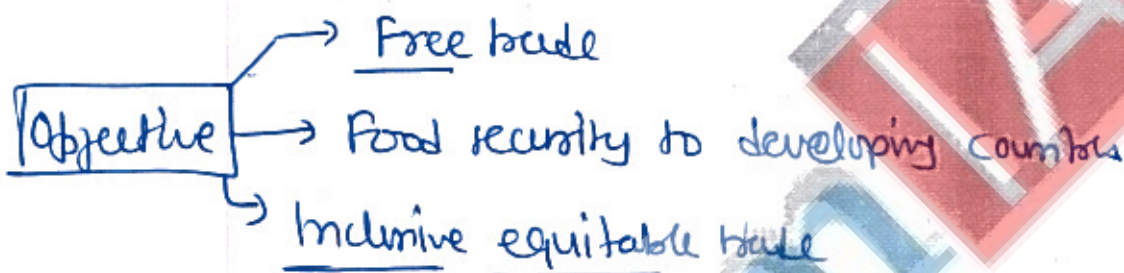 Free trade
Objective
Food security to developing countries
Inclusive equitable trade